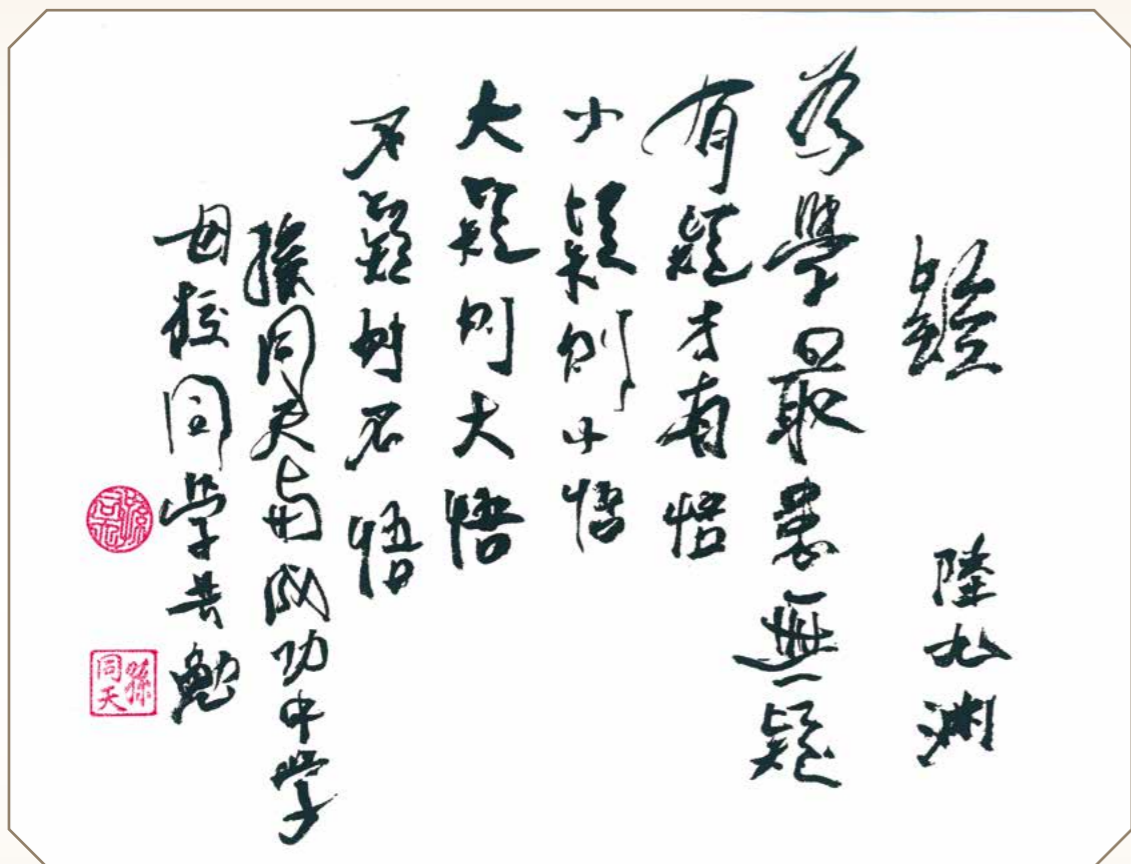 疑 陸九淵
為學最畏無疑
有疑才有悟
小疑則小悟
大疑則大悟
不疑則不悟
孫同天與成功中学
母校同学共勉
孫同天
孫同天